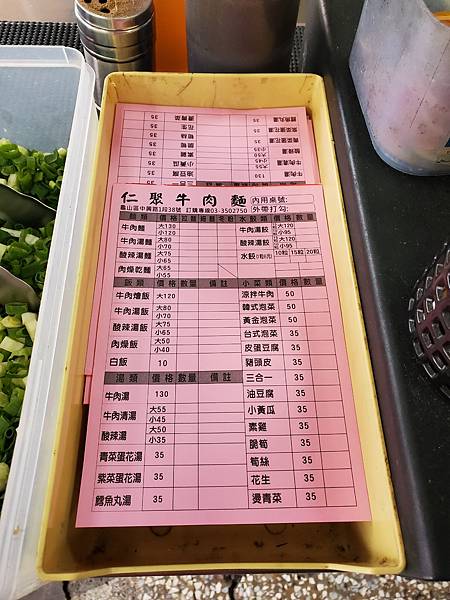 仁聚牛肉麵
龜山區中興路1段38號 訂購專線03-3502750
內用桌號:
外帶打勾:
麵類 價格 拉麵 細麵 冬粉
牛肉麵 大130 小120
牛肉湯麵 大80 小70
酸辣湯麵 大75 小65
肉燥乾麵 大65 小55
水餃 價格 數量
牛肉湯餃 大120 小95
酸辣湯餃 大120 小95
水餃 10粒 15粒 20粒
飯類 價格 數量 備註
牛肉燴飯 大120
牛肉湯飯 大80 小70
酸辣湯飯 大75 小65
肉燥飯 大50 小40
白飯 10
湯類 價格 數量 備註
牛肉湯 130
牛肉清湯 大55 小45
酸辣湯 大50 小35
青菜蛋花湯 35
紫菜蛋花湯 35
鱈魚丸湯 35
小菜類 價格 數量
涼拌牛肉 50
韓式泡菜 50
黃金泡菜 50
台式泡菜 35
皮蛋豆腐 35
豬頭皮 35
三合一 35
油豆腐 35
小黃瓜 35
素雞 35
脆筍 35
筍絲 35
花生 35
燙青菜 35